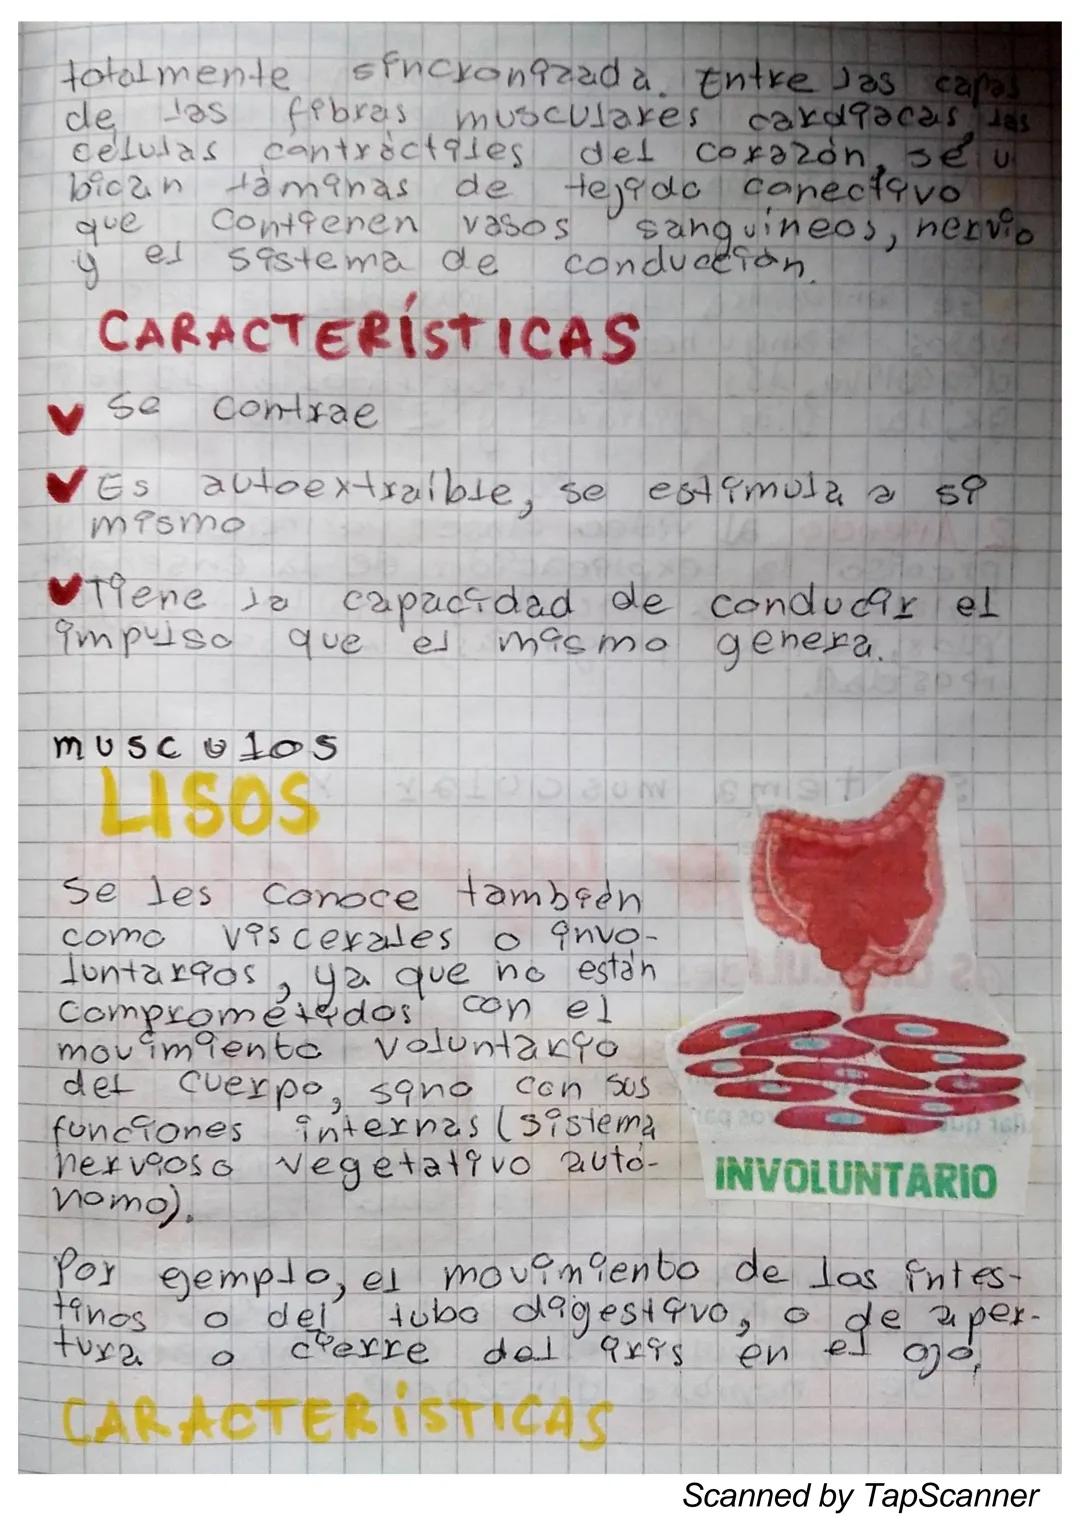 totalmente sincronizada. Entre las capas
de las fibras musculares cardiacas, las
celulas contráctiles del corazón, se u
bican láminas de tejido conectivo
que contienen vasos sanguíneos, nervio
y el sistema de conducción.
CARACTERÍSTICAS
Se contrae
Es autoextraíble, se estimula a si
mismo
Tiene la capacidad de conducir el
impulso que el mismo genera.
musculos
LISOS
Se les conoce también
como viscerales o invo-
luntarios, ya que no están
comprometidos con el
movimiento voluntario
del cuerpo, sino con sus
funciones internas (sistema
nervioso vegetativo autó-
nomo).
INVOLUNTARIO
Por ejemplo, el movimiento de los intes-
tinos o del tubo digestivo, o de aper-
tura o cierre del iris en el ojo.
CARACTERÍSTICAS
Scanned by TapScanner